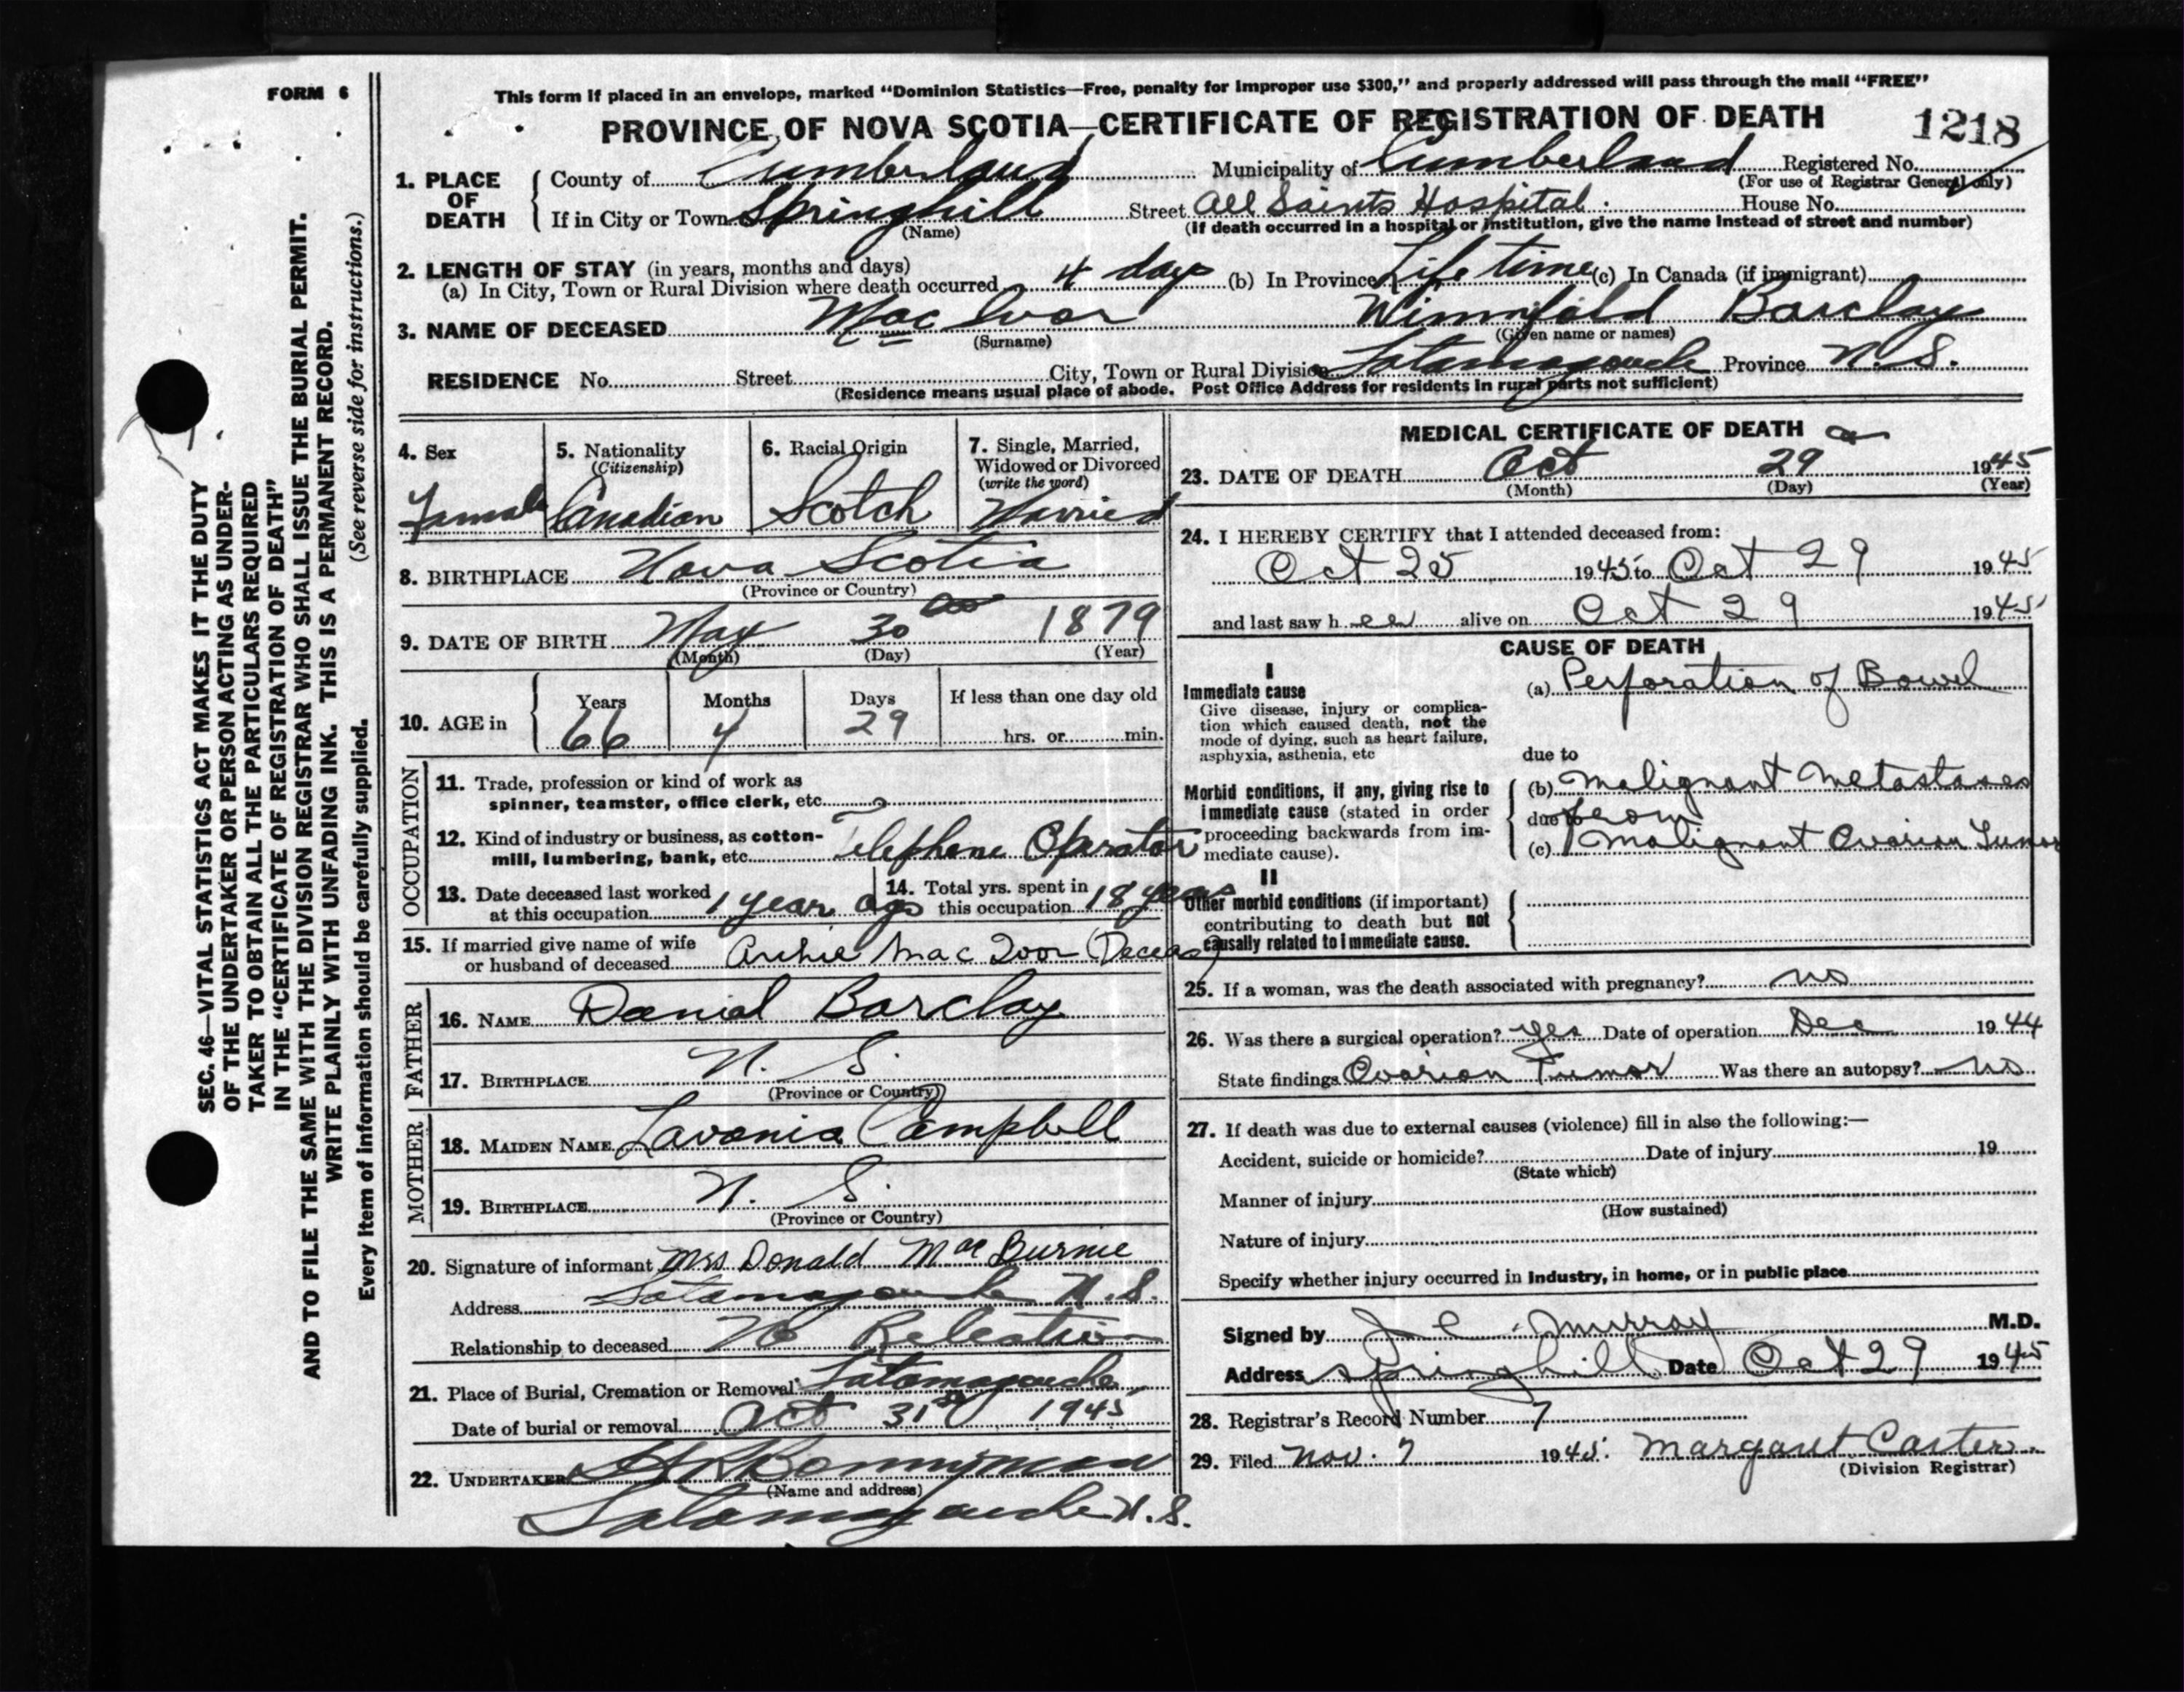 FORM 6
This form if placed in an envelope, marked “Dominion Statistics—Free, penalty for improper use $300,” and properly addressed will pass through the mail “FREE”
PROVINCE OF NOVA SCOTIA—CERTIFICATE OF REGISTRATION OF DEATH
1218
1. PLACE OF DEATH
County of Cumberland Municipality of Cumberland Registered No.
(For use of Registrar General only)
If in City or Town Springhill Street All Saints Hospital. House No.
(Name) (If death occurred in a hospital or institution, give the name instead of street and number)
2. LENGTH OF STAY (in years, months and days)
(a) In City, Town or Rural Division where death occurred 4 days (b) In Province Life time (c) In Canada (if immigrant)
3. NAME OF DECEASED Mac Ivor Winnifald Barclay
(Surname) (Given name or names)
RESIDENCE No. Street City, Town or Rural Division Tatamagouche Province N.S.
(Residence means usual place of abode. Post Office Address for residents in rural parts not sufficient)
4. Sex
Female
5. Nationality
(Citizenship)
Canadian
6. Racial Origin
Scotch
7. Single, Married,
Widowed or Divorced
(write the word)
Married
8. BIRTHPLACE Nova Scotia
(Province or Country)
9. DATE OF BIRTH May 30 1879
(Month) (Day) (Year)
10. AGE in
Years Months Days If less than one day old
66 4 29 hrs. or min.
OCCUPATION
11. Trade, profession or kind of work as
spinner, teamster, office clerk, etc.
12. Kind of industry or business, as cotton-
mill, lumbering, bank, etc. Telephone Operator
13. Date deceased last worked
at this occupation 1 year ago
14. Total yrs. spent in
this occupation 18 years
15. If married give name of wife
or husband of deceased Archie Mac Ivor (Deceas)
FATHER
16. NAME Danial Barclay
17. BIRTHPLACE N. S.
(Province or Country)
MOTHER
18. MAIDEN NAME Lavonia Campbell
19. BIRTHPLACE N. S.
(Province or Country)
20. Signature of informant Mrs Donald Mac Burnie
Address Tatamagouche N.S.
Relationship to deceased No Releation
21. Place of Burial, Cremation or Removal Tatamagouche
Date of burial or removal Oct 31st 1945
22. UNDERTAKER Bonnyman
(Name and address)
Tatamagouche N.S.
MEDICAL CERTIFICATE OF DEATH
23. DATE OF DEATH Oct 29 1945
(Month) (Day) (Year)
24. I HEREBY CERTIFY that I attended deceased from:
Oct 25 1945 to Oct 29 1945
and last saw h er alive on Oct 29 1945
CAUSE OF DEATH
I
Immediate cause
Give disease, injury or complica-
tion which caused death, not the
mode of dying, such as heart failure,
asphyxia, asthenia, etc
(a) Perforation of Bowel
due to
Morbid conditions, if any, giving rise to
immediate cause (stated in order
proceeding backwards from im-
mediate cause).
(b) Malignant Metastases
due to from
(c) Malignant Ovarian Tumor
II
Other morbid conditions (if important)
contributing to death but not
causally related to immediate cause.
25. If a woman, was the death associated with pregnancy? no
26. Was there a surgical operation? yes Date of operation Dec 1944
State findings Ovarian Tumor Was there an autopsy? no
27. If death was due to external causes (violence) fill in also the following:—
Accident, suicide or homicide? Date of injury 19
(State which)
Manner of injury
(How sustained)
Nature of injury
Specify whether injury occurred in industry, in home, or in public place
Signed by J C Murray M.D.
Address Springhill Date Oct 29 1945
28. Registrar's Record Number 7
29. Filed Nov. 7 1945. Margaret Carter
(Division Registrar)
SEC. 46—VITAL STATISTICS ACT MAKES IT THE DUTY
OF THE UNDERTAKER OR PERSON ACTING AS UNDER-
TAKER TO OBTAIN ALL THE PARTICULARS REQUIRED
IN THE “CERTIFICATE OF REGISTRATION OF DEATH”
AND TO FILE THE SAME WITH THE DIVISION REGISTRAR WHO SHALL ISSUE THE BURIAL PERMIT.
WRITE PLAINLY WITH UNFADING INK. THIS IS A PERMANENT RECORD.
Every item of information should be carefully supplied. (See reverse side for instructions.)